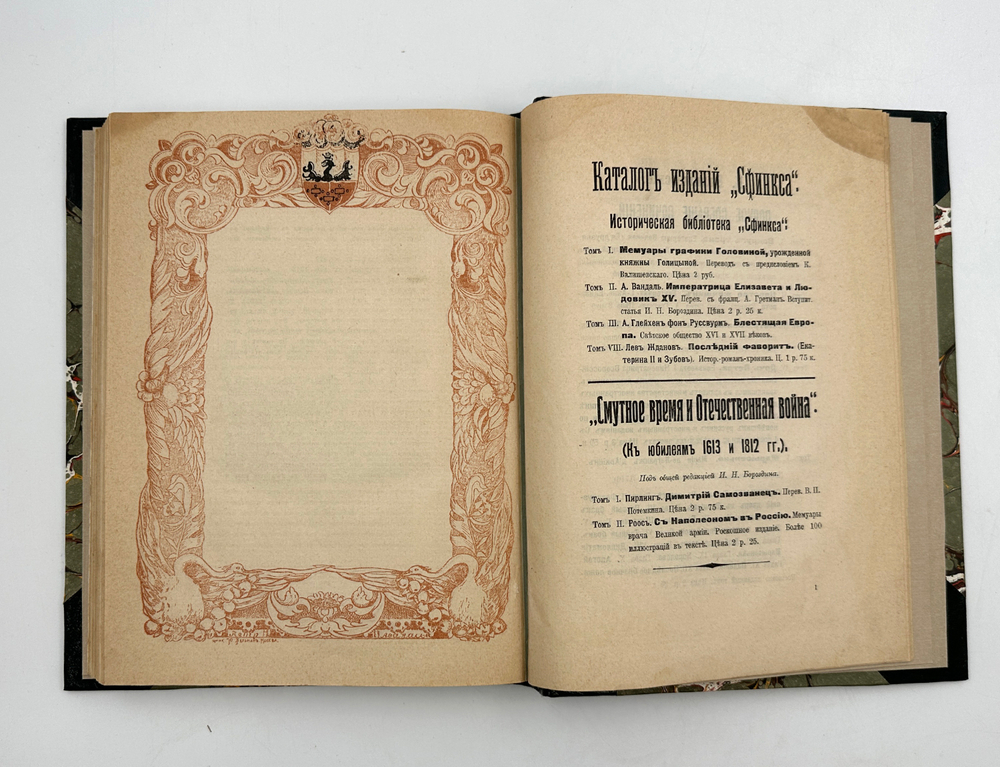 Каталогъ изданій „Сфинкса“:
Историческая библіотека „Сфинкса“:
Томъ I. Мемуары графини Головиной, урожденной
княжны Голицыной. Переводъ съ предисловіемъ К.
Валишевскаго. Цѣна 2 руб.
Томъ II. А. Вандаль. Императрица Елизавета и Лю-
довикъ XV. Перев. съ франц. А. Гретманъ. Вступит.
статья И. Н. Бороздина. Цѣна 2 р. 25 к.
Томъ III. А. Глейхенъ фонъ Руссвурмъ. Блестящая Евро-
па. Свѣтское общество XVI и XVII вѣковъ.
Томъ VIII. Левъ Ждановъ. Послѣдній фаворитъ. (Ека-
терина II и Зубовъ). Истор.-романъ-хроника. Ц. 1 р. 75 к.
„Смутное время и Отечественная война“.
(Къ юбилеямъ 1613 и 1812 гг.).
Подъ общей редакціей И. Н. Бороздина.
Томъ I. Пирлингъ. Димитрій Самозванецъ. Перев. В. П.
Потемкина. Цѣна 2 р. 75 к.
Томъ II. Роосъ. Съ Наполеономъ въ Россію. Мемуары
врача Великой арміи. Роскошное изданіе. Болѣе 100
иллюстрацій въ текстѣ. Цѣна 2 р. 25.
1